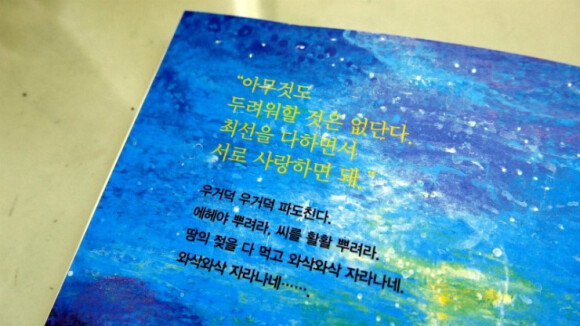 "아무것도
두려워할 것은 없단다.
최선을 다하면서
서로 사랑하면 돼."
우거덕 우거덕 파도친다.
에헤야 뿌려라, 씨를 활활 뿌려라.
땅의 젖을 다 먹고 와삭와삭 자라나네.
와삭와삭 자라나네…….